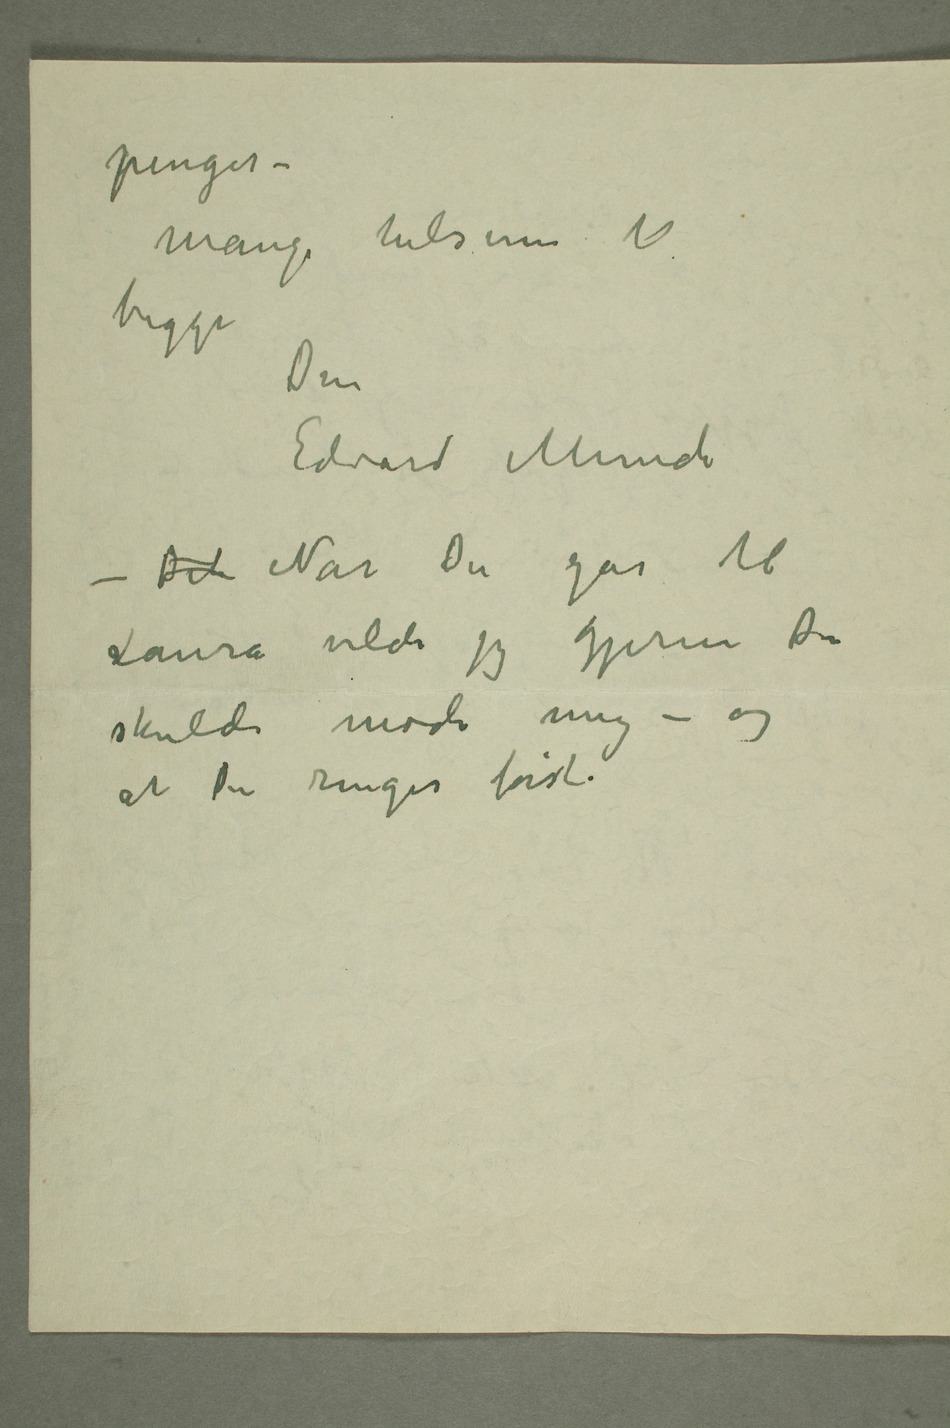 penger –
mange hilsener til
begge
Din
Edvard Munch
– Det Når Du går til
Laura vilde jeg gjerne Du
skulde møde mig – og
at Du ringer først.